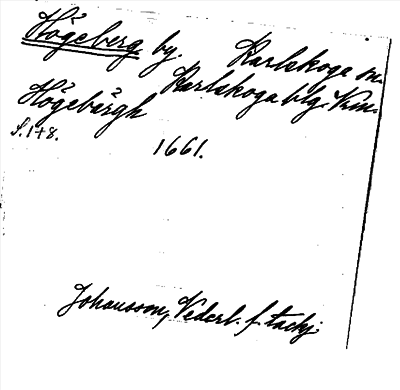 Högeberg by. Karlskoga sn.
Karlskoga blg. Krin.
Högebärgh
S. 178.
1661.
Johansson, Vederl. f. tackj.